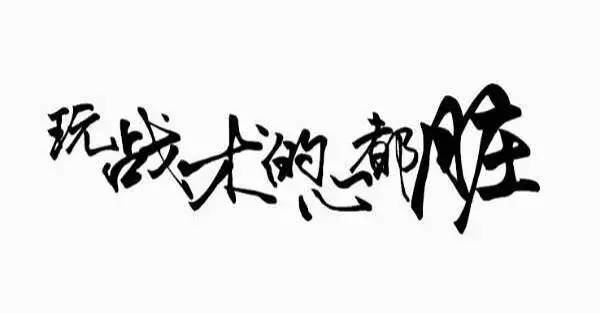 玩战术的心都脏